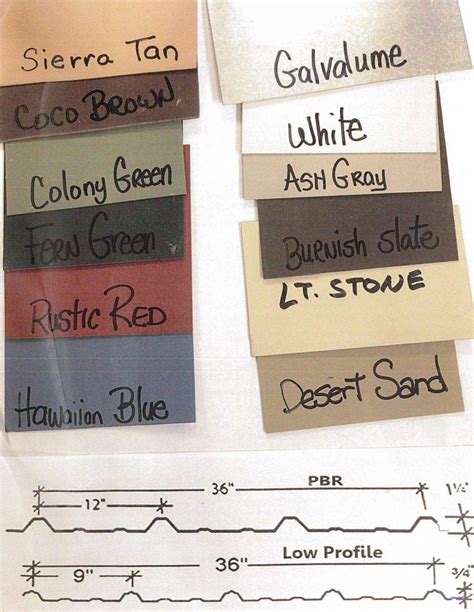 Sierra Tan
Coco Brown
Colony Green
Fern Green
Rustic Red
Hawaiion Blue
Galvalume
White
Ash Gray
Burnish Slate
LT. STONE
Desert Sand
36" PBR
12"
1½"
36" Low Profile
9"
3/4"